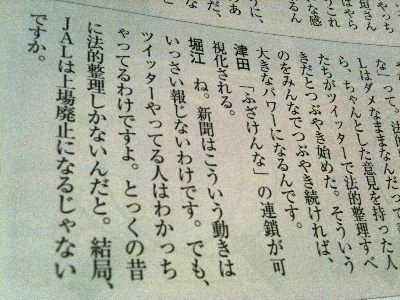 な」って。法的
Lはダメなままなんだって
ら、ちゃんとした意見を持った人
たちがツイッターで法的整理すべ
きだとつぶやき始めた。そういう
のをみんなでつぶやき続ければ、
大きなパワーになるんです。
津田 「ふざけんな」の連鎖が可
視化される。
堀江 ね。新聞はこういう動きは
いっさい報じないわけです。でも、
ツイッターやってる人はわかっち
ゃってるわけですよ。とっくの昔
に法的整理しかないんだと。結局、
JALは上場廃止になるじゃない
ですか。